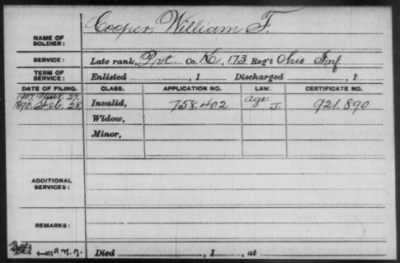 NAME OF SOLDIER: Cooper, William F.
SERVICE: Late rank, Pvt. Co. K, 173 Reg't Ohio Inf
TERM OF SERVICE: Enlisted , 1 Discharged , 1
DATE OF FILING. CLASS. APPLICATION NO. LAW. CERTIFICATE NO.
1890, Feb. 28 Invalid, 758.402 age J. 921.890
Widow,
Minor,
ADDITIONAL SERVICES:
REMARKS:
Died , 1 , at